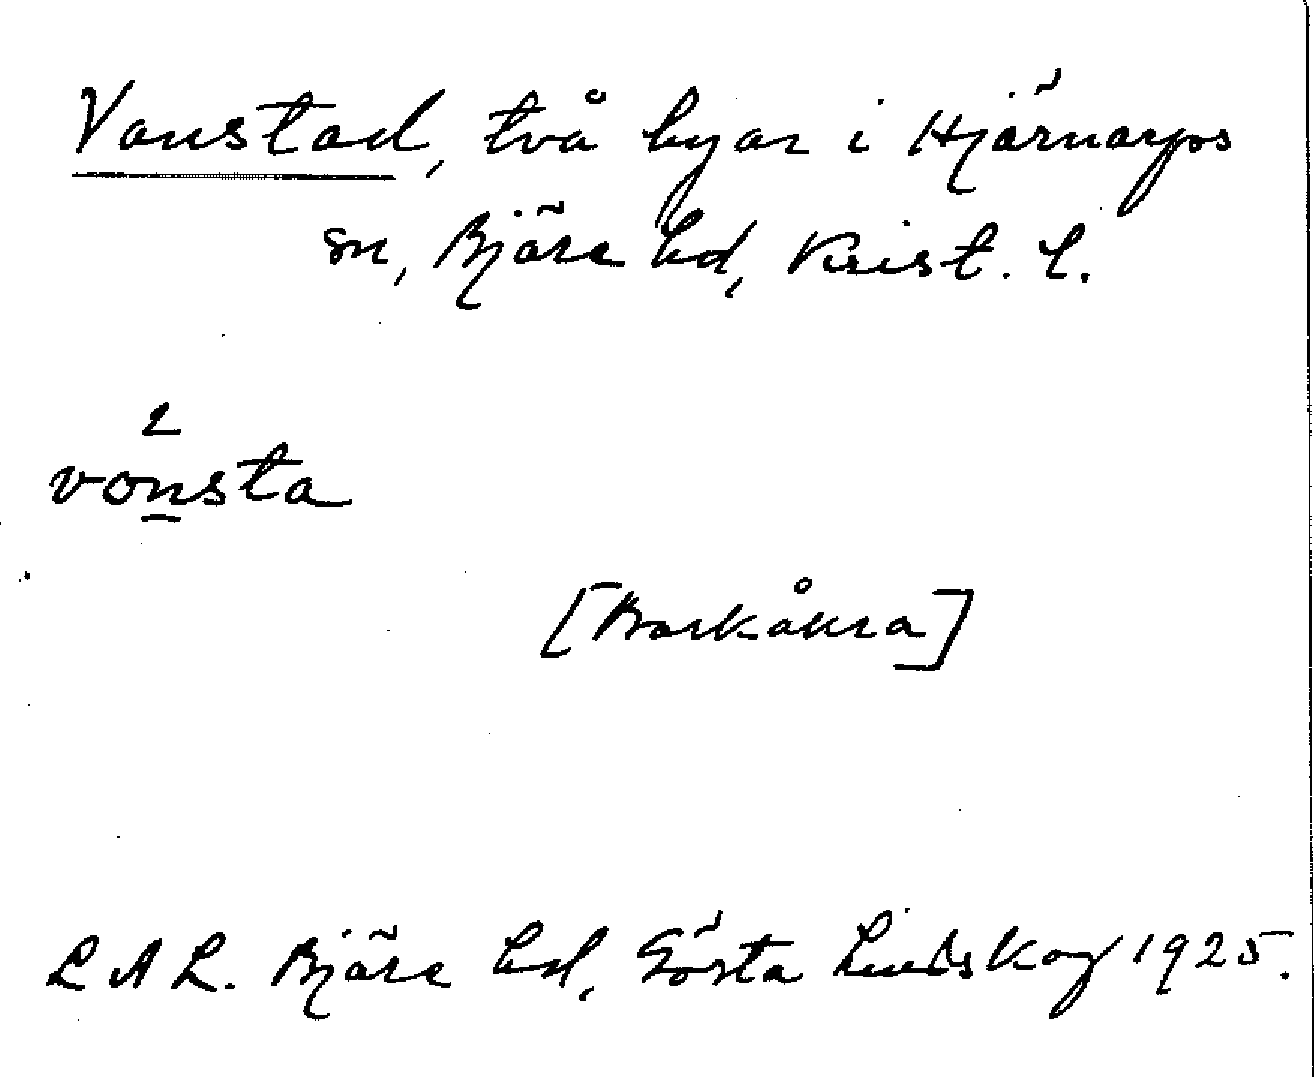 Vanstad, två byar i Hjärnarps
sn, Bjäre hd, Krist. l.
2
vonsta
[Barkåkra]
LAL. Bjäre hd, Gösta Lindskog 1925.